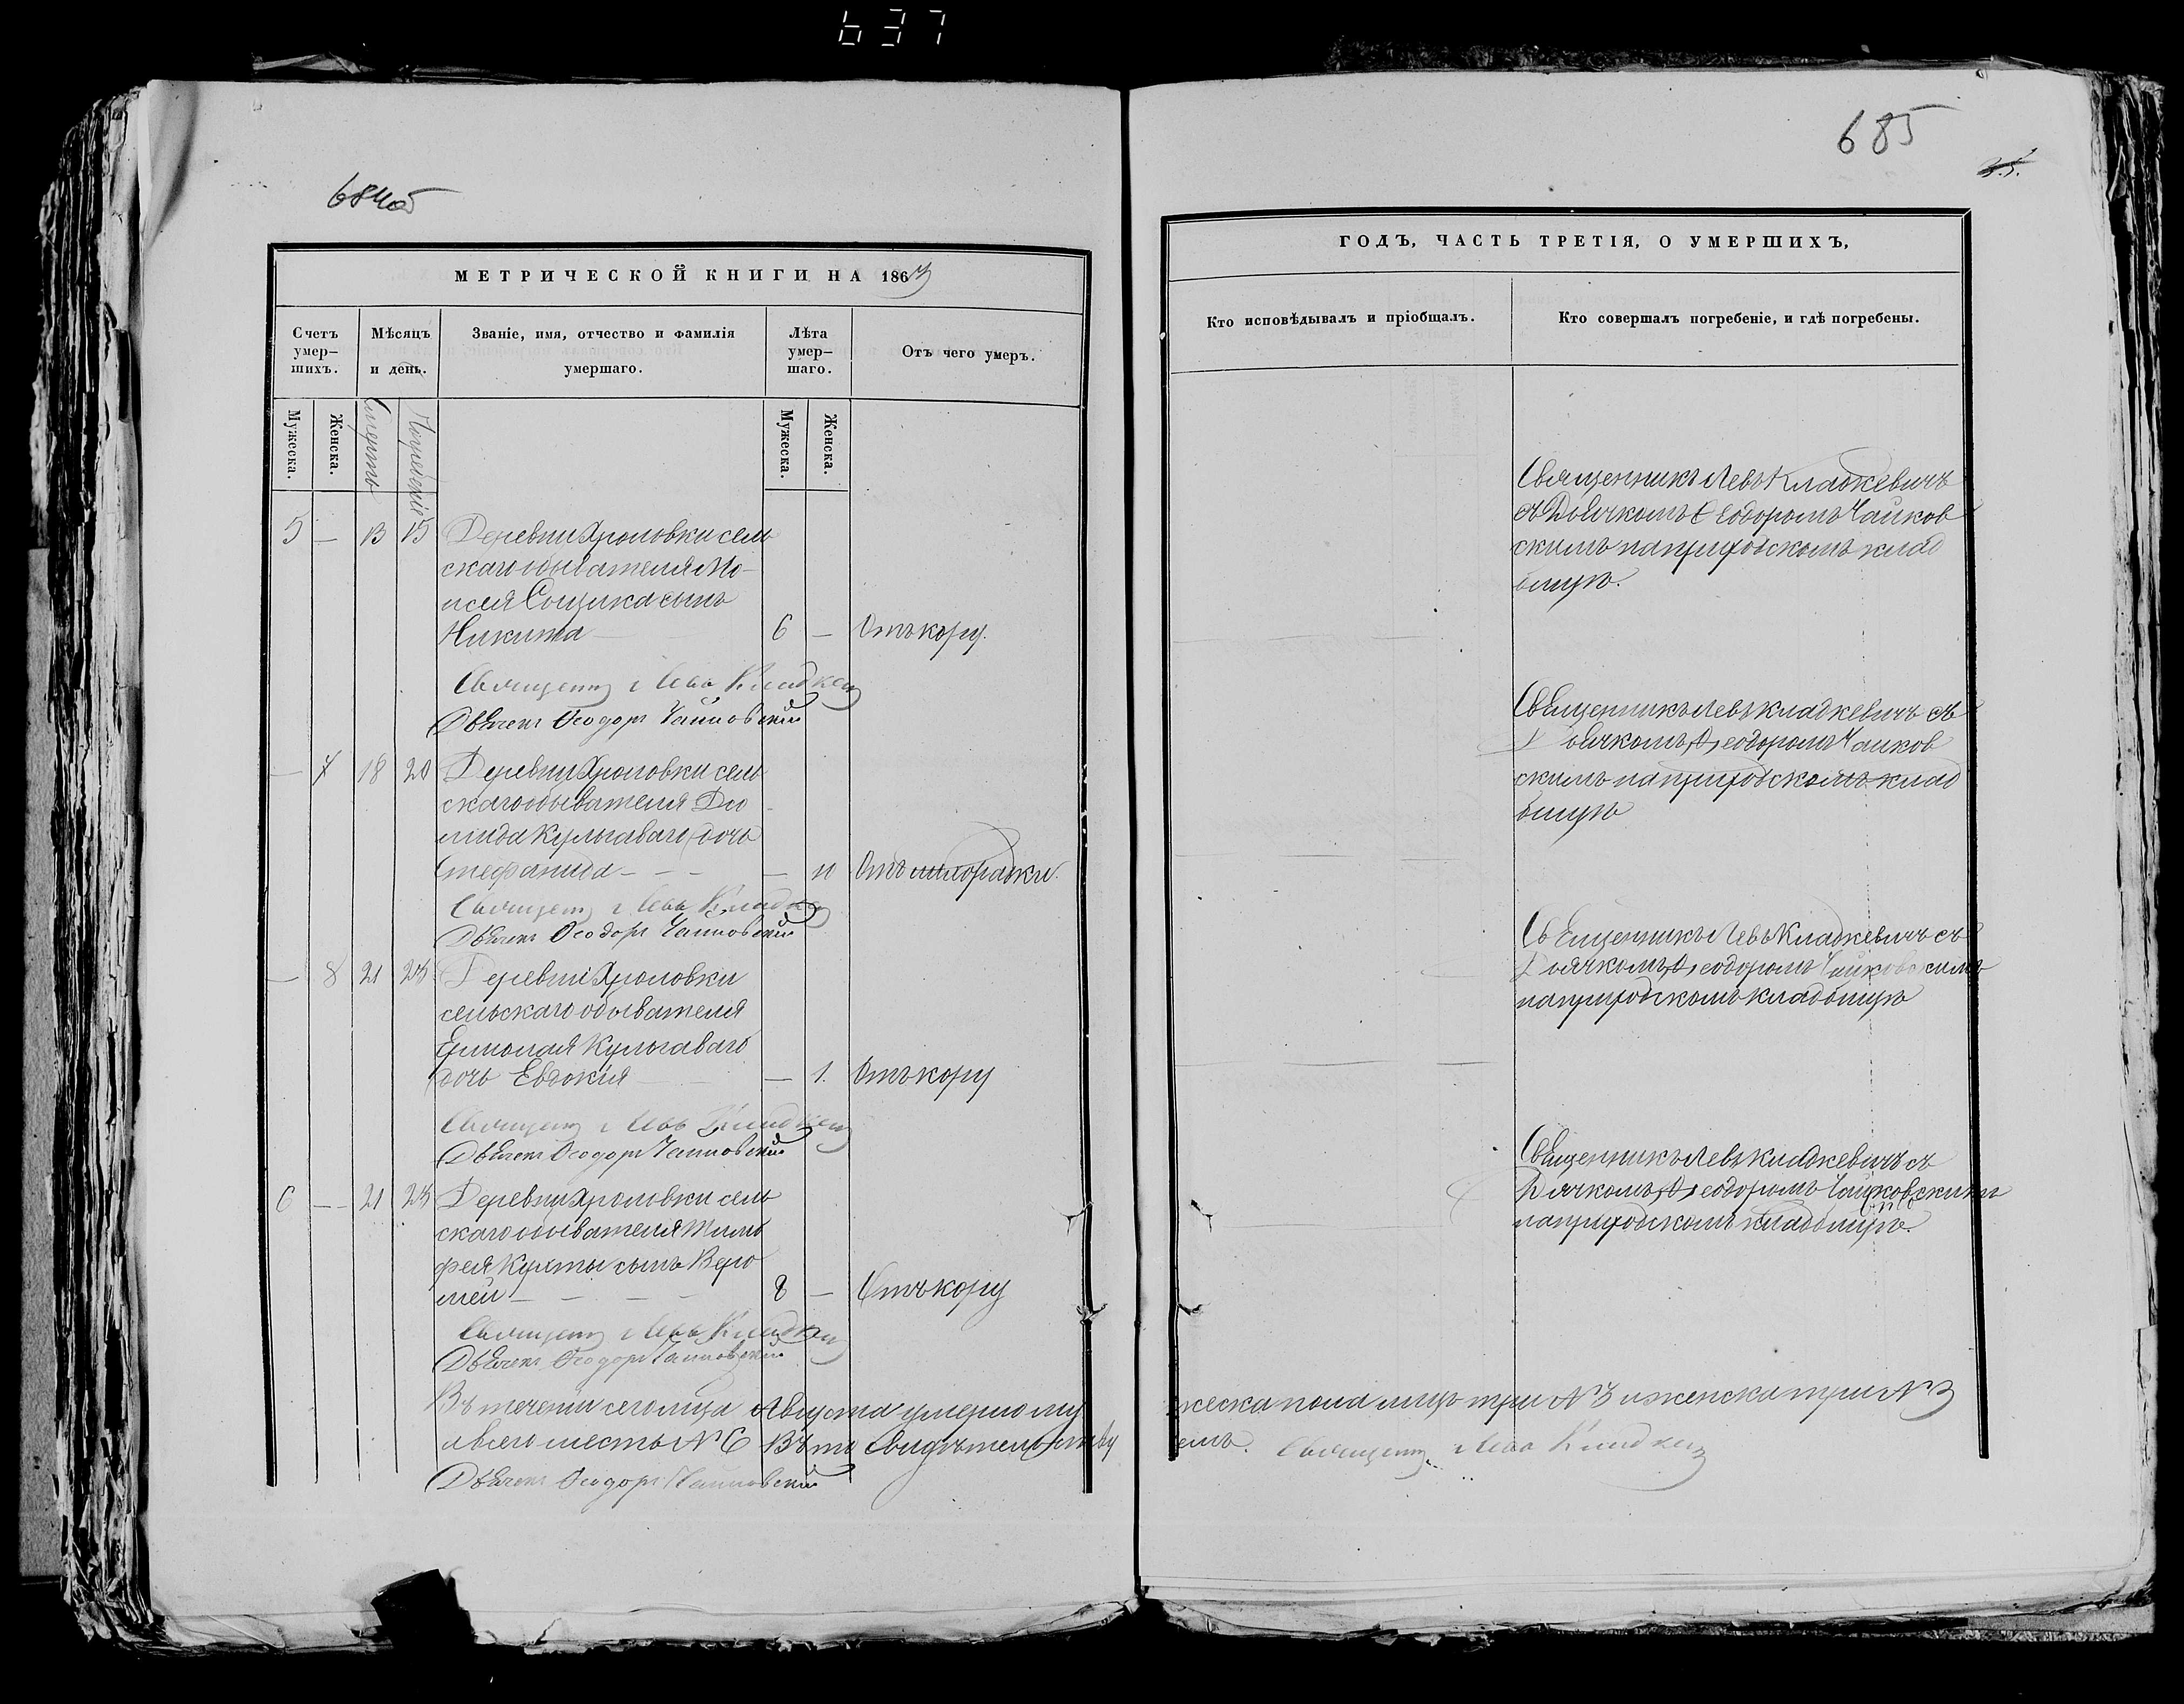 637
684об
685
МЕТРИЧЕСКОЙ КНИГИ НА 1863
Счетъ умер-
шихъ.
Мѣсяцъ
и день.
Званіе, имя, отчество и фамилія
умершаго.
Лѣта
умер-
шаго.
Отъ чего умеръ.
Мужеска.
Женска.
Смерть
Погребенія
Мужеска.
Женска.
5 — 13 15 Деревни Хроловки сель
скаго обывателя Мо-
исея Сощика сынъ
Никита 6 — Отъ кору.
Священникъ Левъ Кладкевичъ
Дьячекъ Ѳеодоръ Чайковскій
— 7 18 20 Деревни Хроловки сель
скаго обывателя Дio-
мида Кульгаваго дочь
Стефанида — — — 11 Отъ лихорадки.
Священникъ Левъ Кладкевичъ
Дьячекъ Ѳеодоръ Чайковскій
— 8 21 23 Деревни Хроловки
сельскаго обывателя
Ермолая Кульгаваго
дочь Евдокія — 1. Отъ кору
Священникъ Левъ Кладкевичъ
Дьячекъ Ѳеодоръ Чайковскій
6 — 21 23 Деревни Хроловки сель
скаго обывателя Тимо
фея Кухты сынъ Варѳо
мей 8 — Отъ кору
Священникъ Левъ Кладкевичъ
Дьячекъ Ѳеодоръ Чайковскій
Въ теченіи сего мца Августа умерло му
а всего шесть №6 Въ томъ Свидѣтельству
Дьячекъ Ѳеодоръ Чайковскій
ГОДЪ, ЧАСТЬ ТРЕТІЯ, О УМЕРШИХЪ,
Кто исповѣдывалъ и пріобщалъ.
Кто совершалъ погребеніе, и гдѣ погребены.
Священникъ Левъ Кладкевичъ
съ Дьячкомъ Ѳеодоромъ Чайков
скимъ на приходскомъ клад
бищѣ.
Священникъ Левъ Кладкевичъ съ
Дьячкомъ Ѳеодоромъ Чайков
скимъ на приходскомъ клад
бищѣ
Священникъ Левъ Кладкевичъ съ
Дьячкомъ Ѳеодоромъ Чайковскимъ
на приходскомъ кладбищѣ
Священникъ Левъ Кладкевичъ съ
Дьячкомъ Ѳеодоромъ Чайковскимъ
на приходскомъ кладбищѣ.
жеска пола лицъ три №3 и женска три №3
емъ. Священникъ Левъ Кладкевичъ